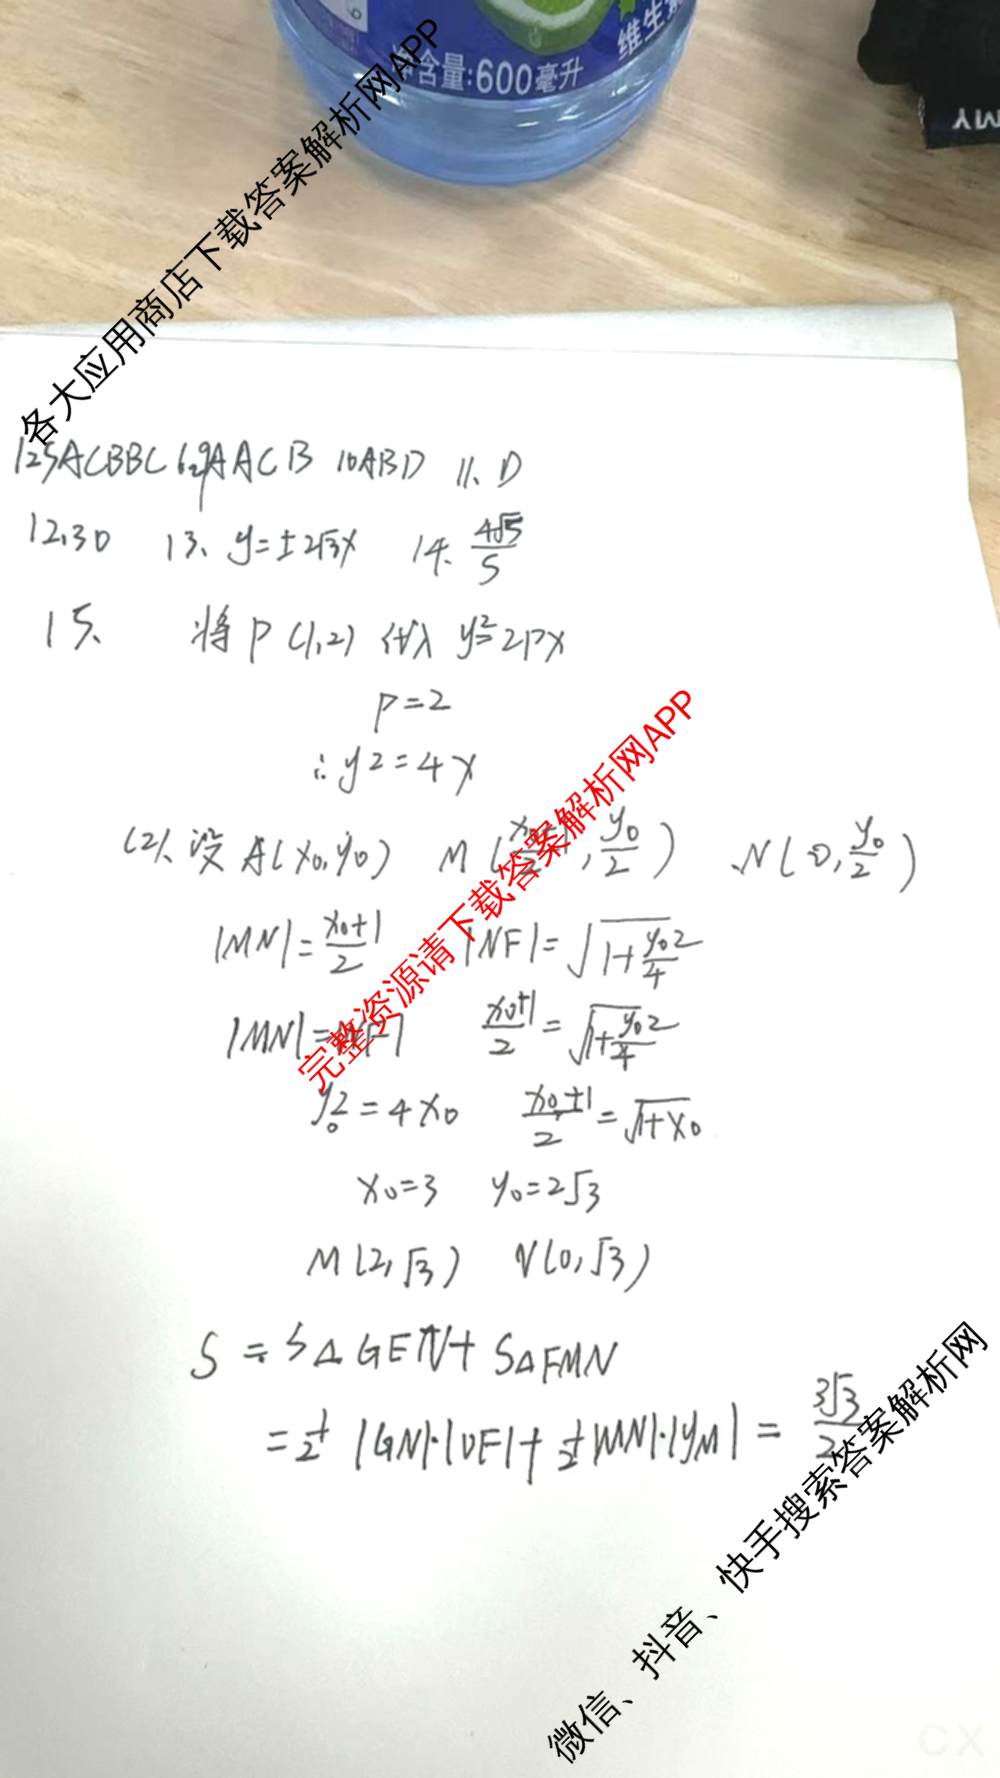 含量:600毫升
维生素
MY
各大应用商店下载答案解析网APP
1-5ACBBC 6-9AACB 10ABD 11、D
12.30 13、y=±2√3x 14、4√5/5
15、 将P(1,2)代入 y²=2px
p=2
∴y2=4x
(2)、设A(x0,y0) M(x0+1/2,y0/2) N(0,y0/2)
|MN|=x0+1/2 |NF|=√1+y0²/4
|MN|=|NF| x0+1/2=√1+y0²/4
y0²=4x0 x0+1/2=√1+x0
x0=3 y0=2√3
M(2,√3) N(0,√3)
完整资源请下载答案解析网APP
S=S△GFN+S△FMN
=1/2|GN|·|OF|+1/2|MN|·|yM|=3√3/2
微信、抖音、快手搜索答案解析网
CX